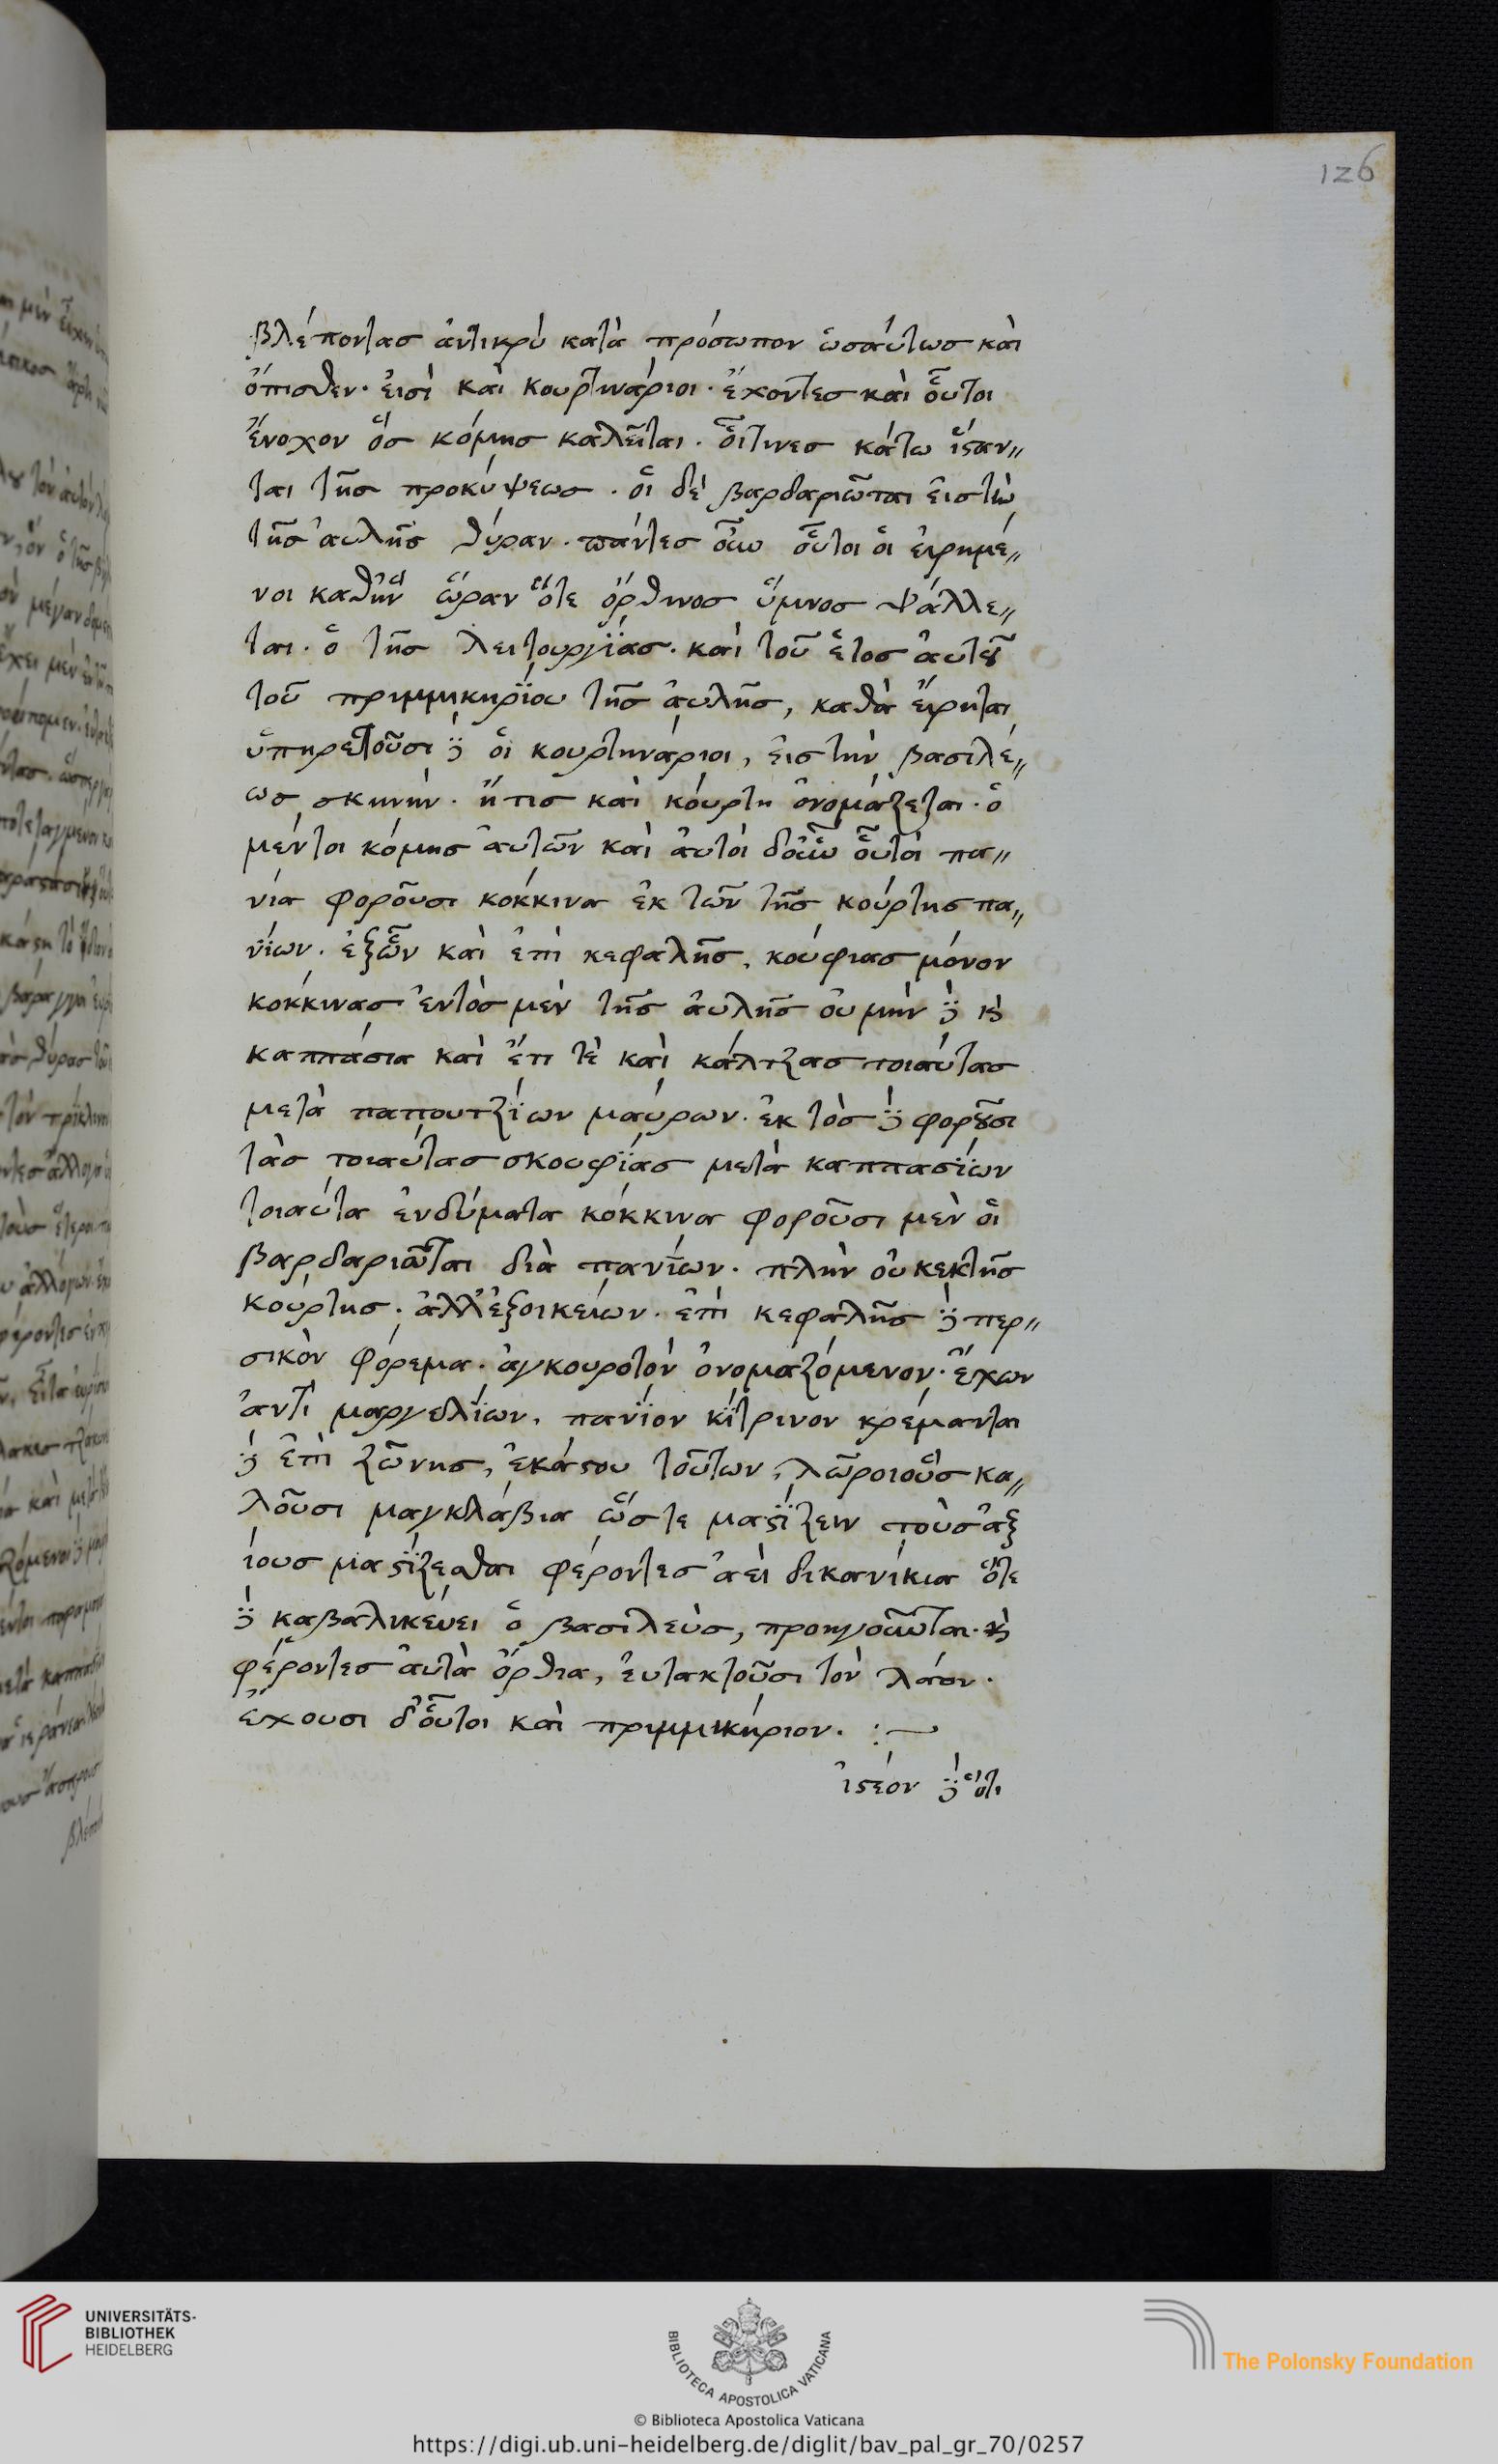 126
βλέποντας ἀντικρὺ κατὰ πρόσωπον ὡσαύτως καὶ
ὄπισθεν· εἰσὶ καὶ κουρτινάριοι· ἔχοντες καὶ οὗτοι
ἔνοχον ὅς κόμης καλεῖται· οἵτινες κάτω ἵσταν〃
ται τῆς προκύψεως· οἱ δὲ βαρδαριῶται εἰς τὴν
τῆς αὐλῆς θύραν· πάντες οὖν οὗτοι οἱ εἰρημέ〃
νοι καθ' ἣν ὥραν ὅτε ὀρθινος ὕμνος ψάλλε〃
ται· ὁ τῆς λειτουργίας· καὶ τοῦ ἔτος αὐτοῦ
τοῦ πριμμικηρίου τῆς αὐλῆς, καθὰ εἴρηται
ὑπηρετοῦσι δὲ οἱ κουρτηνάριοι, εἰς τὴν βασιλέ〃
ως σκηνήν· ἥτις καὶ κόυρτη ὀνομάζεται· ὁ
μέντοι κόμης αὐτῶν καὶ αὐτοὶ δοὖν οὗτοι πα〃
νία φοροῦσι κόκκινα ἐκ τῶν τῆς κούρτης πα〃
νίων· ἐξῶν καὶ ἐπὶ κεφαλῆς, κούφιας μόνον
κοκκίνας ἐντὸς μὲν τῆς αὐλῆς οὐ μὴν δὲ καὶ
καππάσια καὶ ἔτι τὲ καὶ κάλτζας τοιαύτας
μετὰ παπουτζίων μαύρων· ἐκτὸς δὲ φοροῦσι
τὰς τοιαύτας σκουφίας μετὰ καππασίων
τοιαύτα ἐνδύματα κόκκινα φοροῦσι μὲν οἱ
βαρδαριῶται διὰ πανίων· πλὴν οὐκ ἐκ τῆς
κούρτης· ἀλλ' ἐξ οἰκείων· ἐπὶ κεφαλῆς δὲ περ〃
σικὸν φόρεμα· ἀγκουροτὸν ὀνομαζόμενον· ἔχων
ἀντὶ μαργελίων, πανίον κίτρινον κρέμανται
δὲ ἐπὶ ζώνης, ἑκάστου τούτων, λῶροι οὓς κα〃
λοῦσι μαγκλάβια ὥστε μαστίζειν τοὺς ἀξ
ίους μαστίζεσθαι φέροντες ἀεὶ δικανίκια ὅτε
δὲ καβαλικεύει ὁ βασιλεὺς, προηγοῦνται· καὶ
φέροντες αὐτὰ ὄρθια, εὐτακτοῦσι τὸν λάον·
ἔχουσι δ' οὗτοι καὶ πριμμικήριον· :~
ἰστέον δὲ ὅτι
UNIVERSITÄTS-
BIBLIOTHEK
HEIDELBERG
BIBLIOTECA APOSTOLICA VATICANA
The Polonsky Foundation
© Biblioteca Apostolica Vaticana
https://digi.ub.uni-heidelberg.de/diglit/bav_pal_gr_70/0257